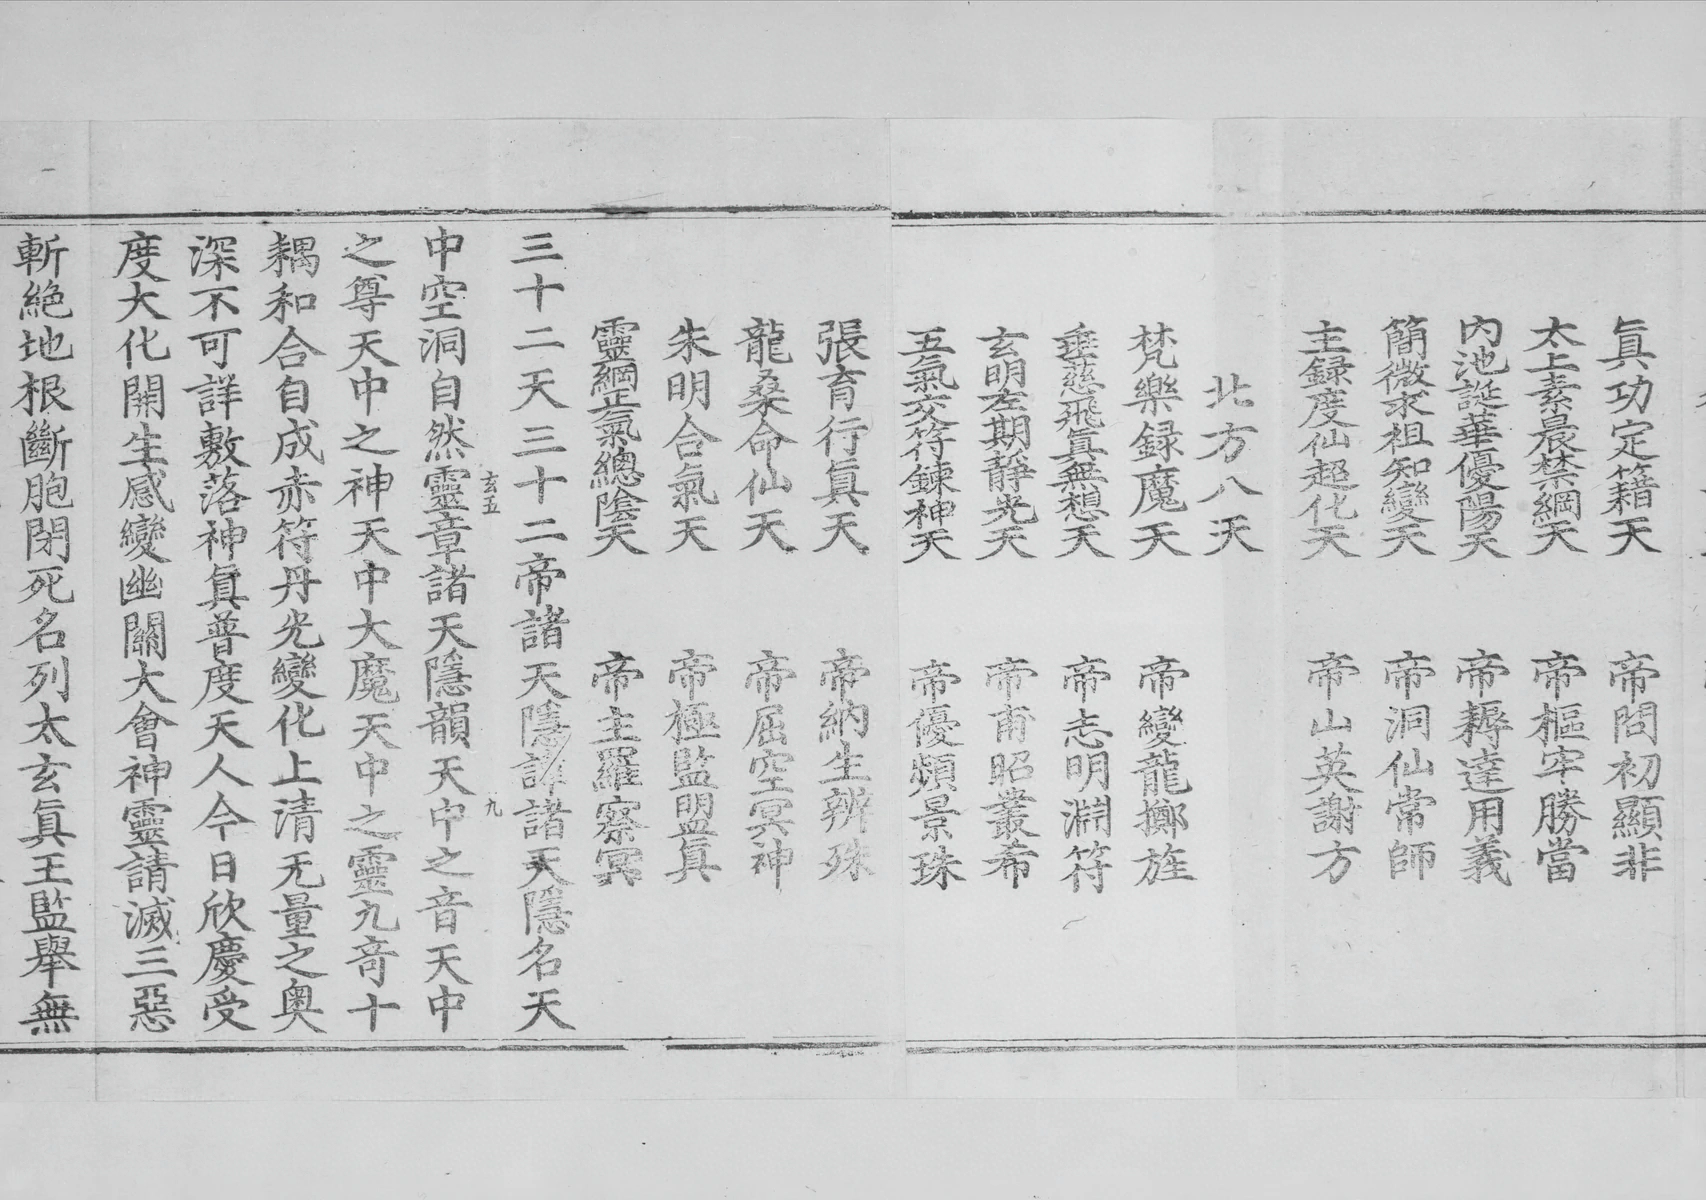 眞功定籍天 帝問初顯非
太上素晨禁綱天 帝樞牢勝當
内池誕華優陽天 帝耨達用義
簡微求祖知變天 帝洞仙常師
主録度仙超化天 帝山英謝方
北方八天
梵樂録魔天 帝變龍擲旌
垂慈飛眞無想天 帝志明淵符
玄明左期靜光天 帝甫昭叢希
五氣交符鍊神天 帝優頻景珠
張育行眞天 帝納生辨殊
龍桑命仙天 帝屈空冥神
朱明合氣天 帝極監盟眞
靈綱正氣總陰天 帝主羅察冥
三十二天三十二帝諸天隱諱諸天隱名天
玄五 九
中空洞自然靈章諸天隱韻天中之音天中
之尊天中之神天中大魔天中之靈九竒十
耦和合自成赤符丹光變化上清无量之奥
深不可詳敷落神眞普度天人今日欣慶受
度大化開生感變幽關大會神靈請滅三惡
斬絶地根斷胞閉死名列太玄眞王監舉無